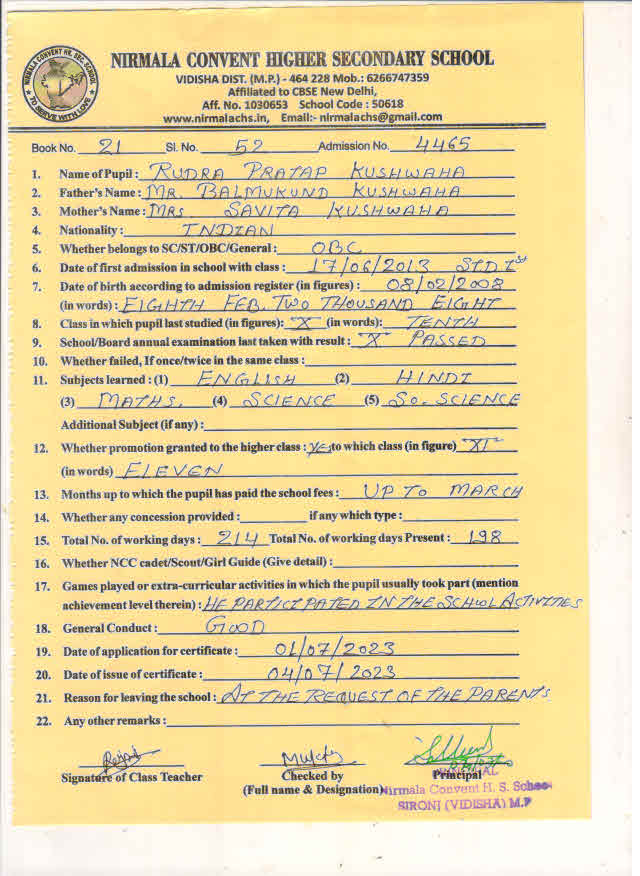 NIRMALA CONVENT HR. SEC. SCHOOL
TO SERVE WITH LOVE
NIRMALA CONVENT HIGHER SECONDARY SCHOOL
VIDISHA DIST. (M.P.) - 464 228 Mob.: 6266747359
Affiliated to CBSE New Delhi,
Aff. No. 1030653 School Code : 50618
www.nirmalachs.in, Email:- nirmalachs@gmail.com
Book No. 21 Sl. No. 52 Admission No. 4465
1. Name of Pupil : RUDRA PRATAP KUSHWAHA
2. Father's Name : MR. BALMUKUND KUSHWAHA
3. Mother's Name : MRS SAVITA KUSHWAHA
4. Nationality : INDIAN
5. Whether belongs to SC/ST/OBC/General : OBC
6. Date of first admission in school with class : 17/06/2013 STD Ist
7. Date of birth according to admission register (in figures) : 08/02/2008
(in words) : EIGHTH FEB. TWO THOUSAND EIGHT
8. Class in which pupil last studied (in figures): "X" (in words): TENTH
9. School/Board annual examination last taken with result : "X" PASSED
10. Whether failed, If once/twice in the same class :
11. Subjects learned : (1) ENGLISH (2) HINDI
(3) MATHS. (4) SCIENCE (5) SO. SCIENCE
Additional Subject (if any) :
12. Whether promotion granted to the higher class : Yes to which class (in figure) "XI"
(in words) ELEVEN
13. Months up to which the pupil has paid the school fees : UP TO MARCH
14. Whether any concession provided : if any which type :
15. Total No. of working days : 214 Total No. of working days Present : 198
16. Whether NCC cadet/Scout/Girl Guide (Give detail) :
17. Games played or extra-curricular activities in which the pupil usually took part (mention
achievement level therein) : HE PARTICIPATED IN THE SCHOOL ACTIVITIES
18. General Conduct : GOOD
19. Date of application for certificate : 01/07/2023
20. Date of issue of certificate : 04/07/2023
21. Reason for leaving the school : AT THE REQUEST OF THE PARENTS
22. Any other remarks :
Signature of Class Teacher Checked by Principal
(Full name & Designation)
PRINCIPAL
Nirmala Convent H. S. School
SIRONJ (VIDISHA) M.P